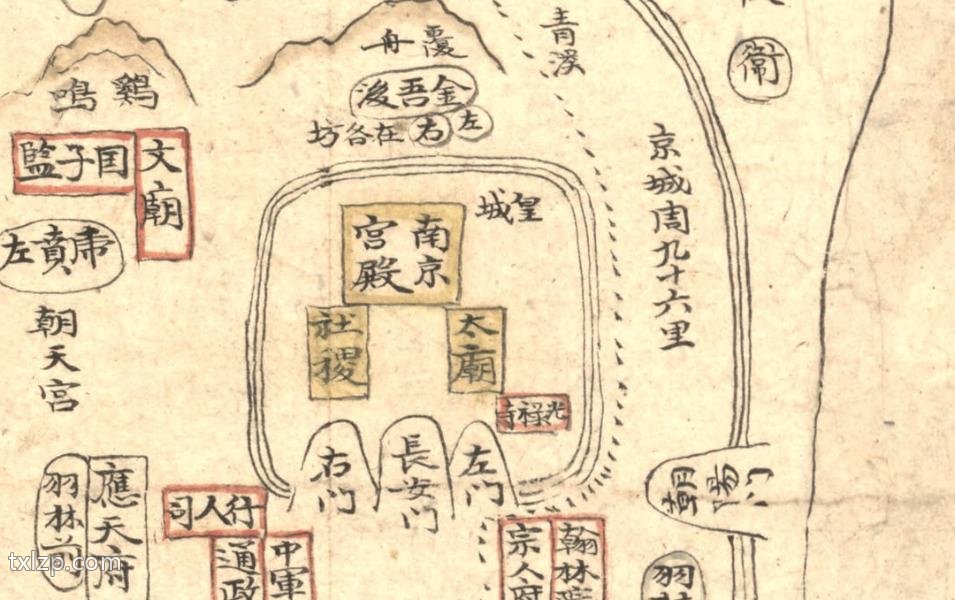 青溪
衛
覆舟
金吾後
左
右
在各坊
雞鳴
文廟
国子監
虎賁左
朝天宮
皇城
南京
宮殿
社稷
太廟
光祿寺
京城周九十六里
左门
長安门
右门
朝陽门
應天府
羽林前
行人司
中軍
通政
翰林院
宗人府
羽林
txlzp.com